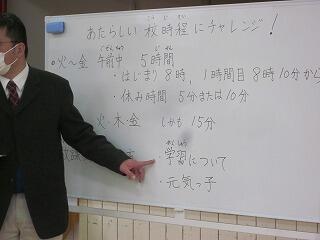 あたらしい校時程にチャレンジ!
•火〜金 午前中 5時間
・はじまり8時、1時間目8時10分から
・休み時間 5分または10分
火・木・金 しかも 15分
・学習について
・元気っ子